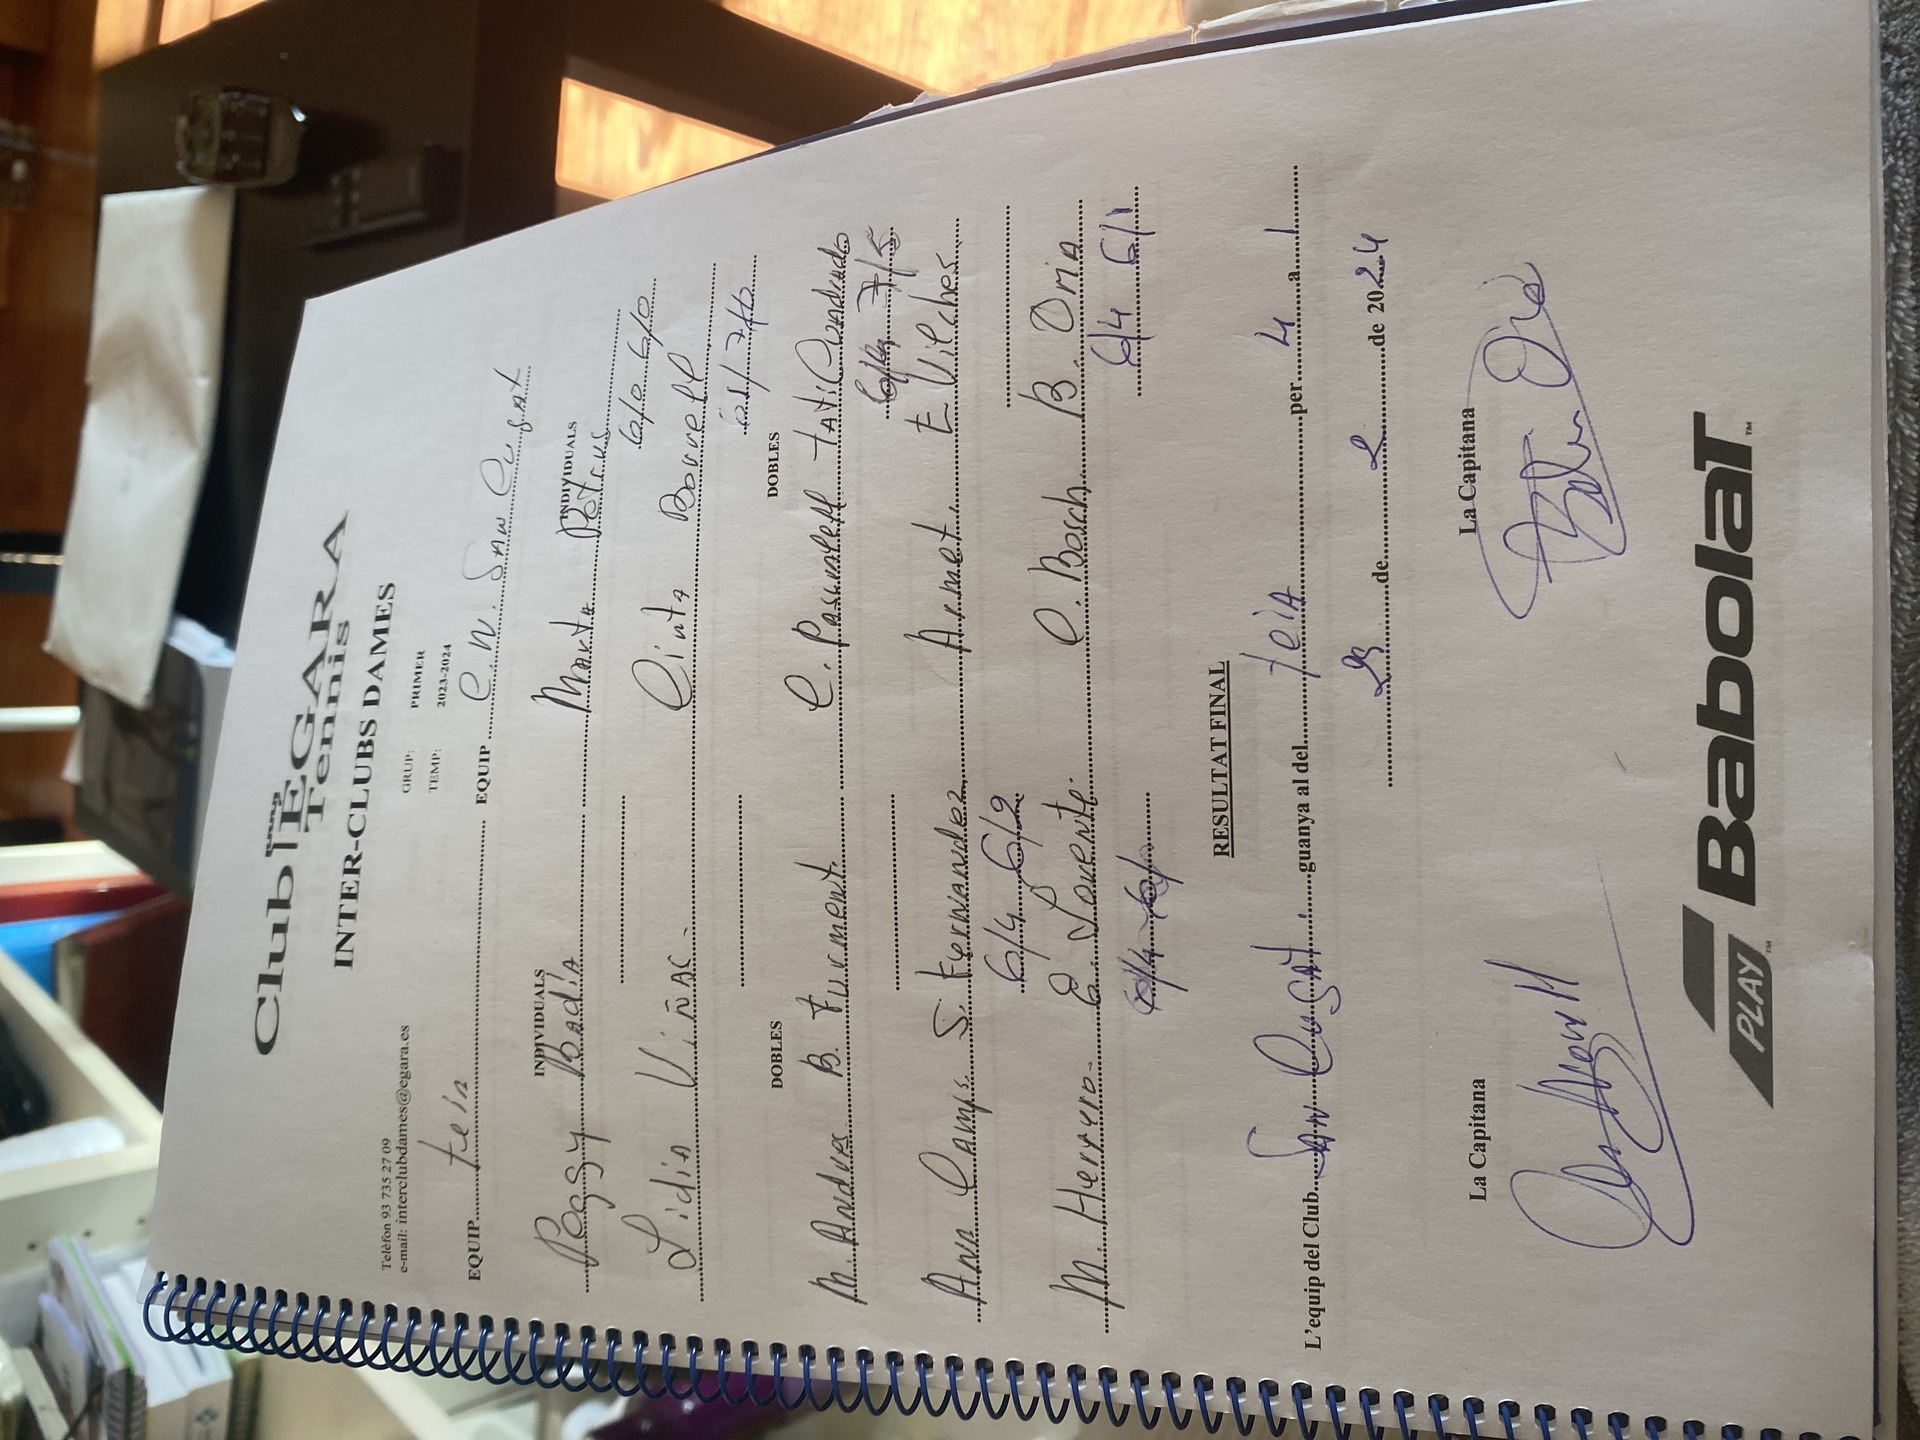 Club EGARA
Tennis
INTER-CLUBS DAMES
Telèfon 93 735 27 09
e-mail: interclubdames@egara.es
GRUP: PRIMER
TEMP: 2023-2024
EQUIP teià EQUIP C.N. San Cugat
INDIVIDUALS INDIVIDUALS
Peggy Badia Marta Petrus
6/0 6/0
Lidia Viñas. Cinta Borrell
61/ 7/6
DOBLES DOBLES
M. Andvex B. Furment. C. Pascuall tati Cundudo
7/5
Ana Camps S. Fernandez Armet. E Vilches
6/4 6/2
M. Herrero. E. Lorente. C. Bosch B. Oria
6/4 6/1
RESULTAT FINAL
L'equip del Club San Cugat guanya al del teià per 4 a 1
23 de 2 de 2024
La Capitana La Capitana
PLAY Babolat